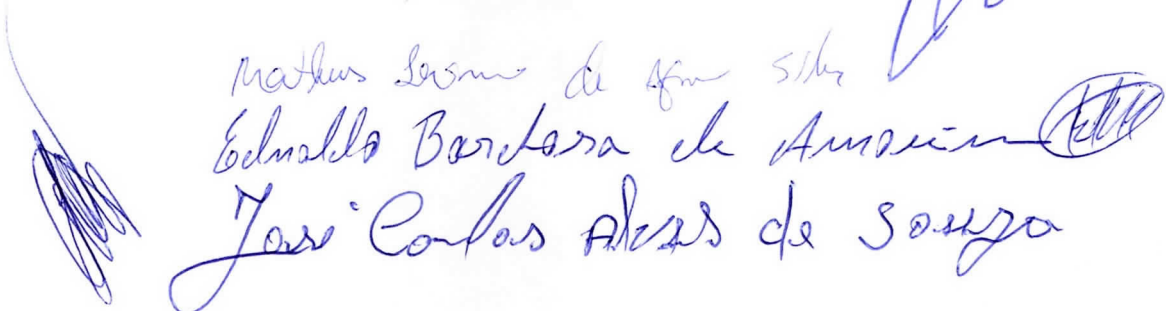 Matheus de Silva
Ednaldo Barbosa de Amorim
José Carlos Alves de Souza